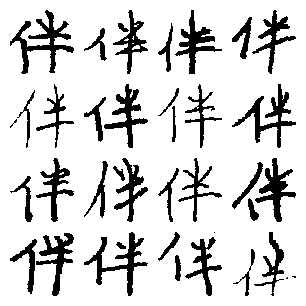 伴伴伴伴
伴伴伴伴
伴伴伴伴
伴伴伴伴